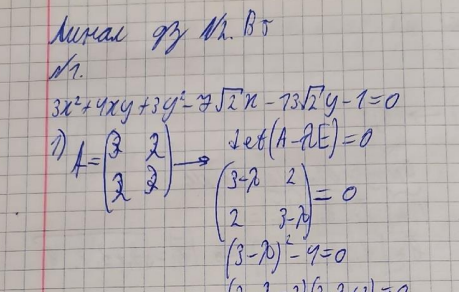 Линал дз №2. В5
№1.
3x²+4xy+3y²-7√2x-13√2y-1=0
1) A=(3 2
2 3) → det(A-λE)=0
(3-λ 2
2 3-λ)=0
(3-λ)²-4=0